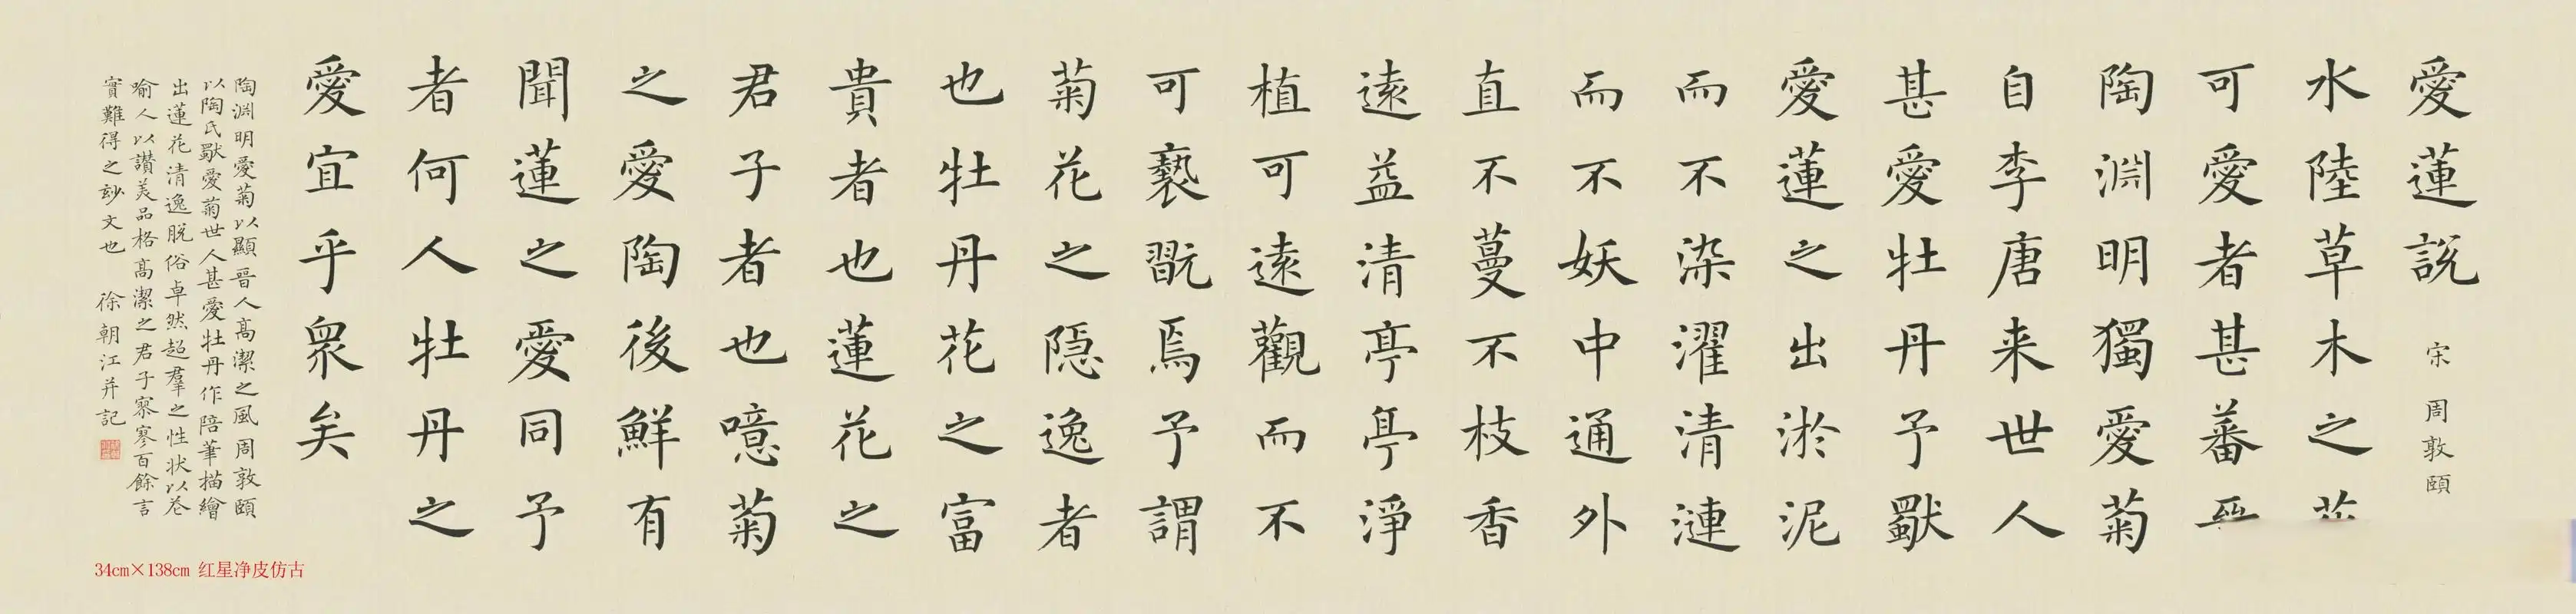 愛蓮説 宋 周敦頤
水陸草木之
可愛者甚蕃
陶淵明獨愛菊
自李唐来世人
甚愛牡丹予獨
愛蓮之出淤泥
而不染濯清漣
而不妖中通外
直不蔓不枝香
遠益清亭亭淨
植可遠觀而不
可褻翫焉予謂
菊花之隱逸者
也牡丹花之富
貴者也蓮花之
君子者也噫菊
之愛陶後鮮有
聞蓮之愛同予
者何人牡丹之
愛宜乎衆矣
陶淵明愛菊以顯晉人高潔之風周敦頤
以陶氏獨愛菊世人甚愛牡丹作陪筆描繪
出蓮花清逸脫俗卓然超羣之性状以花
喻人以讚美品格高潔之君子寥寥百餘言
實難得之玅文也 徐朝江并記
34cm×138cm 红星净皮仿古